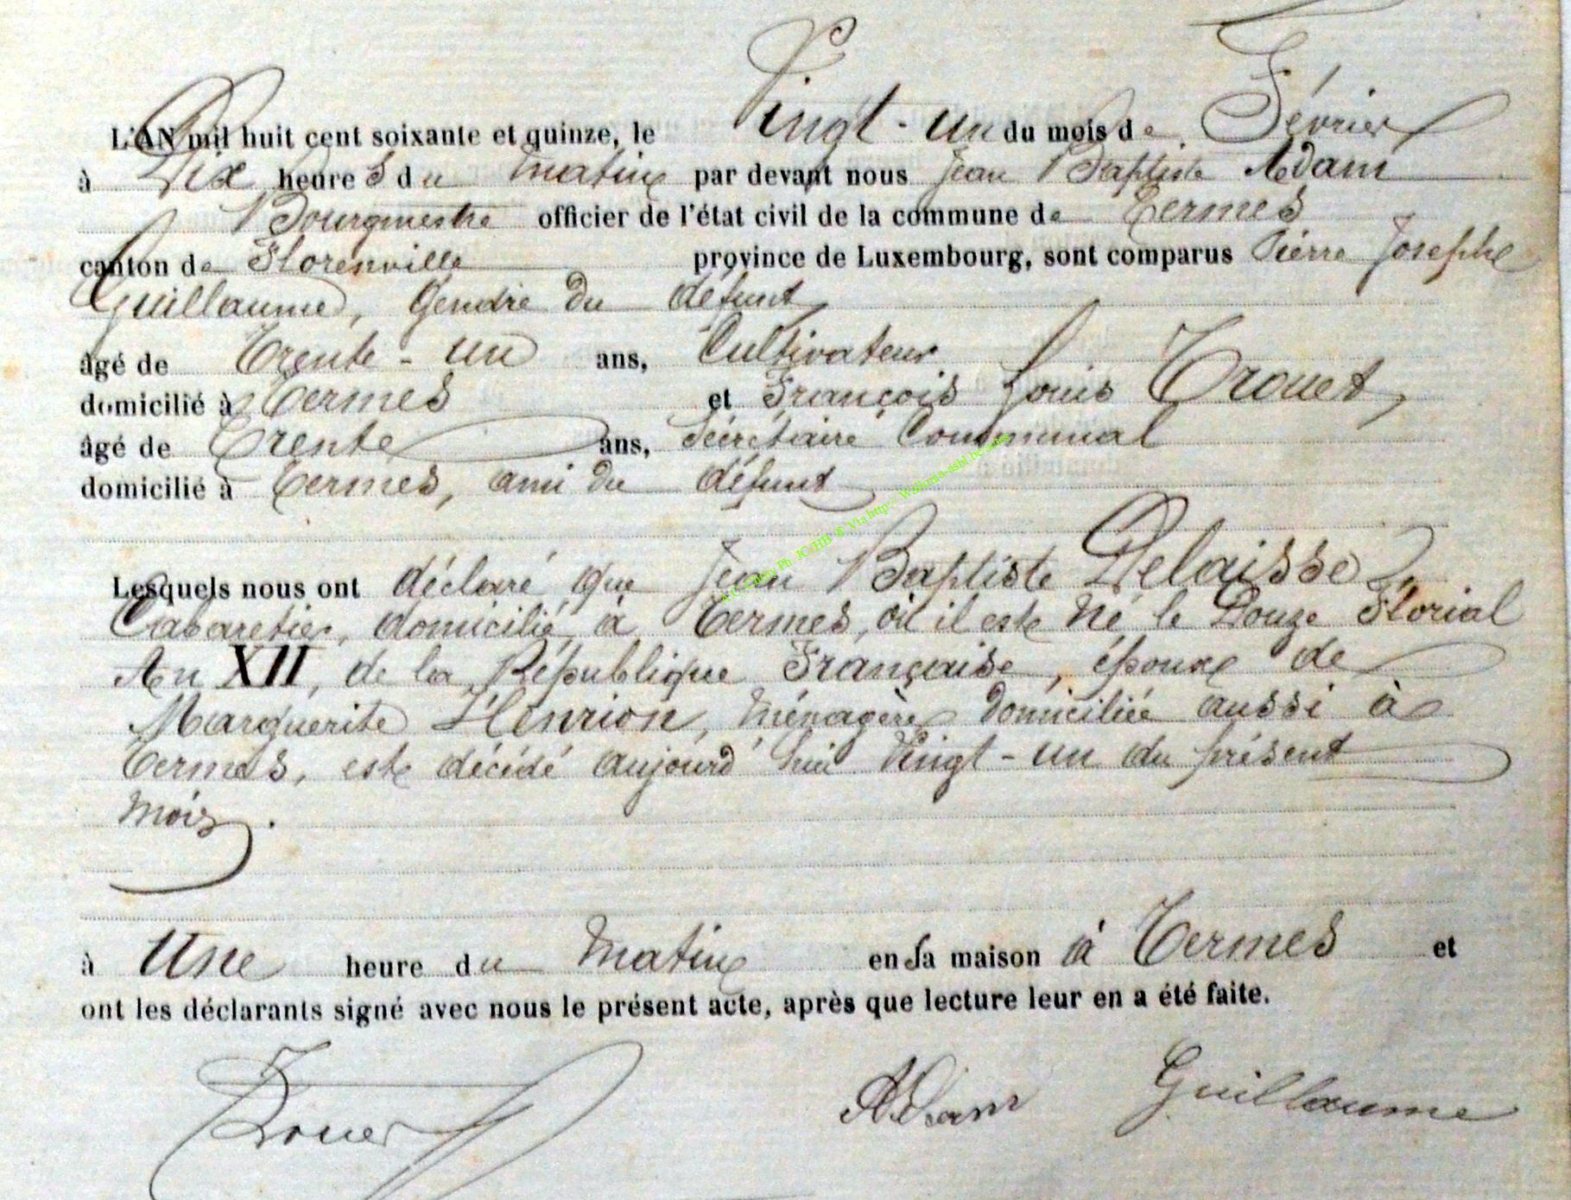 L'AN mil huit cent soixante et quinze, le Vingt-un du mois de Février
à Dix heures du matin par devant nous Jean Baptiste Adam
Bourgmestre officier de l'état civil de la commune de Termes
canton de Florenville province de Luxembourg, sont comparus Pierre Joseph
Guillaume, Gendre du défunt,
âgé de Trente-un ans, Cultivateur
domicilié à Termes et François Louis Trouet,
âgé de Trente ans, Secrétaire Communal
domicilié à Termes, ami du défunt
Lesquels nous ont déclaré que Jean Baptiste Delaisse
Cabaretier, domicilié à Termes, où il est né le Douze Florial
An XII, de la République Française, époux de
Marguerite Henrion, Ménagère domiciliée aussi à
Termes, est décédé aujourd'hui Vingt-un du présent
mois.
à Une heure du Matin en sa maison à Termes et
ont les déclarants signé avec nous le présent acte, après que lecture leur en a été faite.
Trouet Adam Guillaume